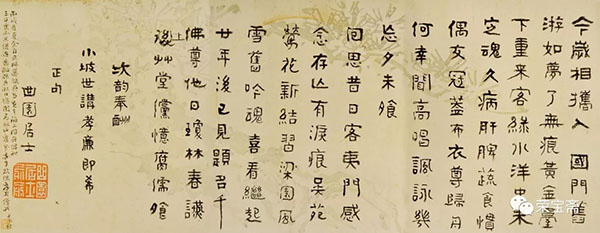 今歲相攜入 國門舊
游如夢了無痕黃金臺
下重來客綠水洋中未
定魂久病肝脾蔬食慣
偶冠蓋布衣尊歸舟
何幸聞高唱諷詠幾
忘夕未飧
回思昔日客夷門感
念存亾有淚痕吳苑
鶯花新結習梁園風
雪舊吟魂喜看繼起
廿年後已見題名千
佛尊他日瓊林春讌
後艸堂儻憶腐儒飧
次韵奉酬
小坡世講孝廉即希
正句
曲園居士
荣宝斋